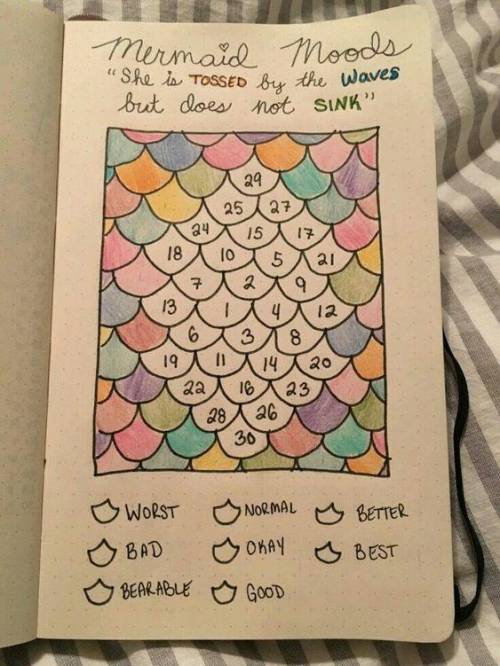 Mermaid Moods
"She is TOSSED by the Waves
but does not SINK"
29
25 27
24 15 17
18 10 5 21
7 2 9
13 1 4 12
6 3 8
19 11 14 20
22 16 23
28 26
30
WORST NORMAL BETTER
BAD OKAY BEST
BEARABLE GOOD